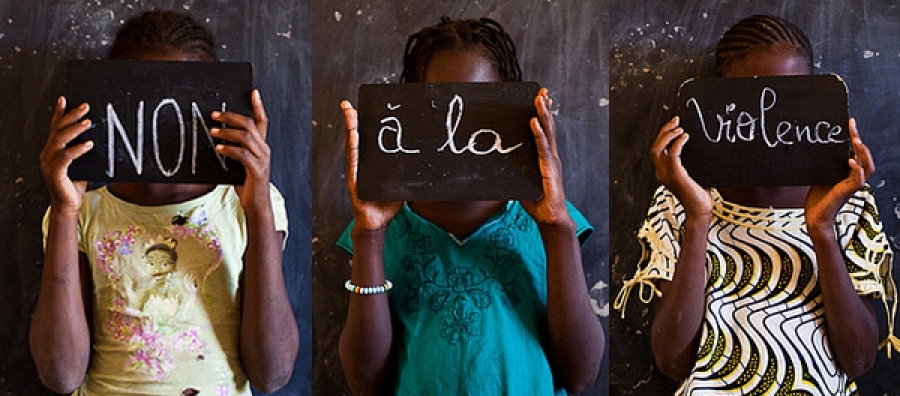 NON
à la
Violence